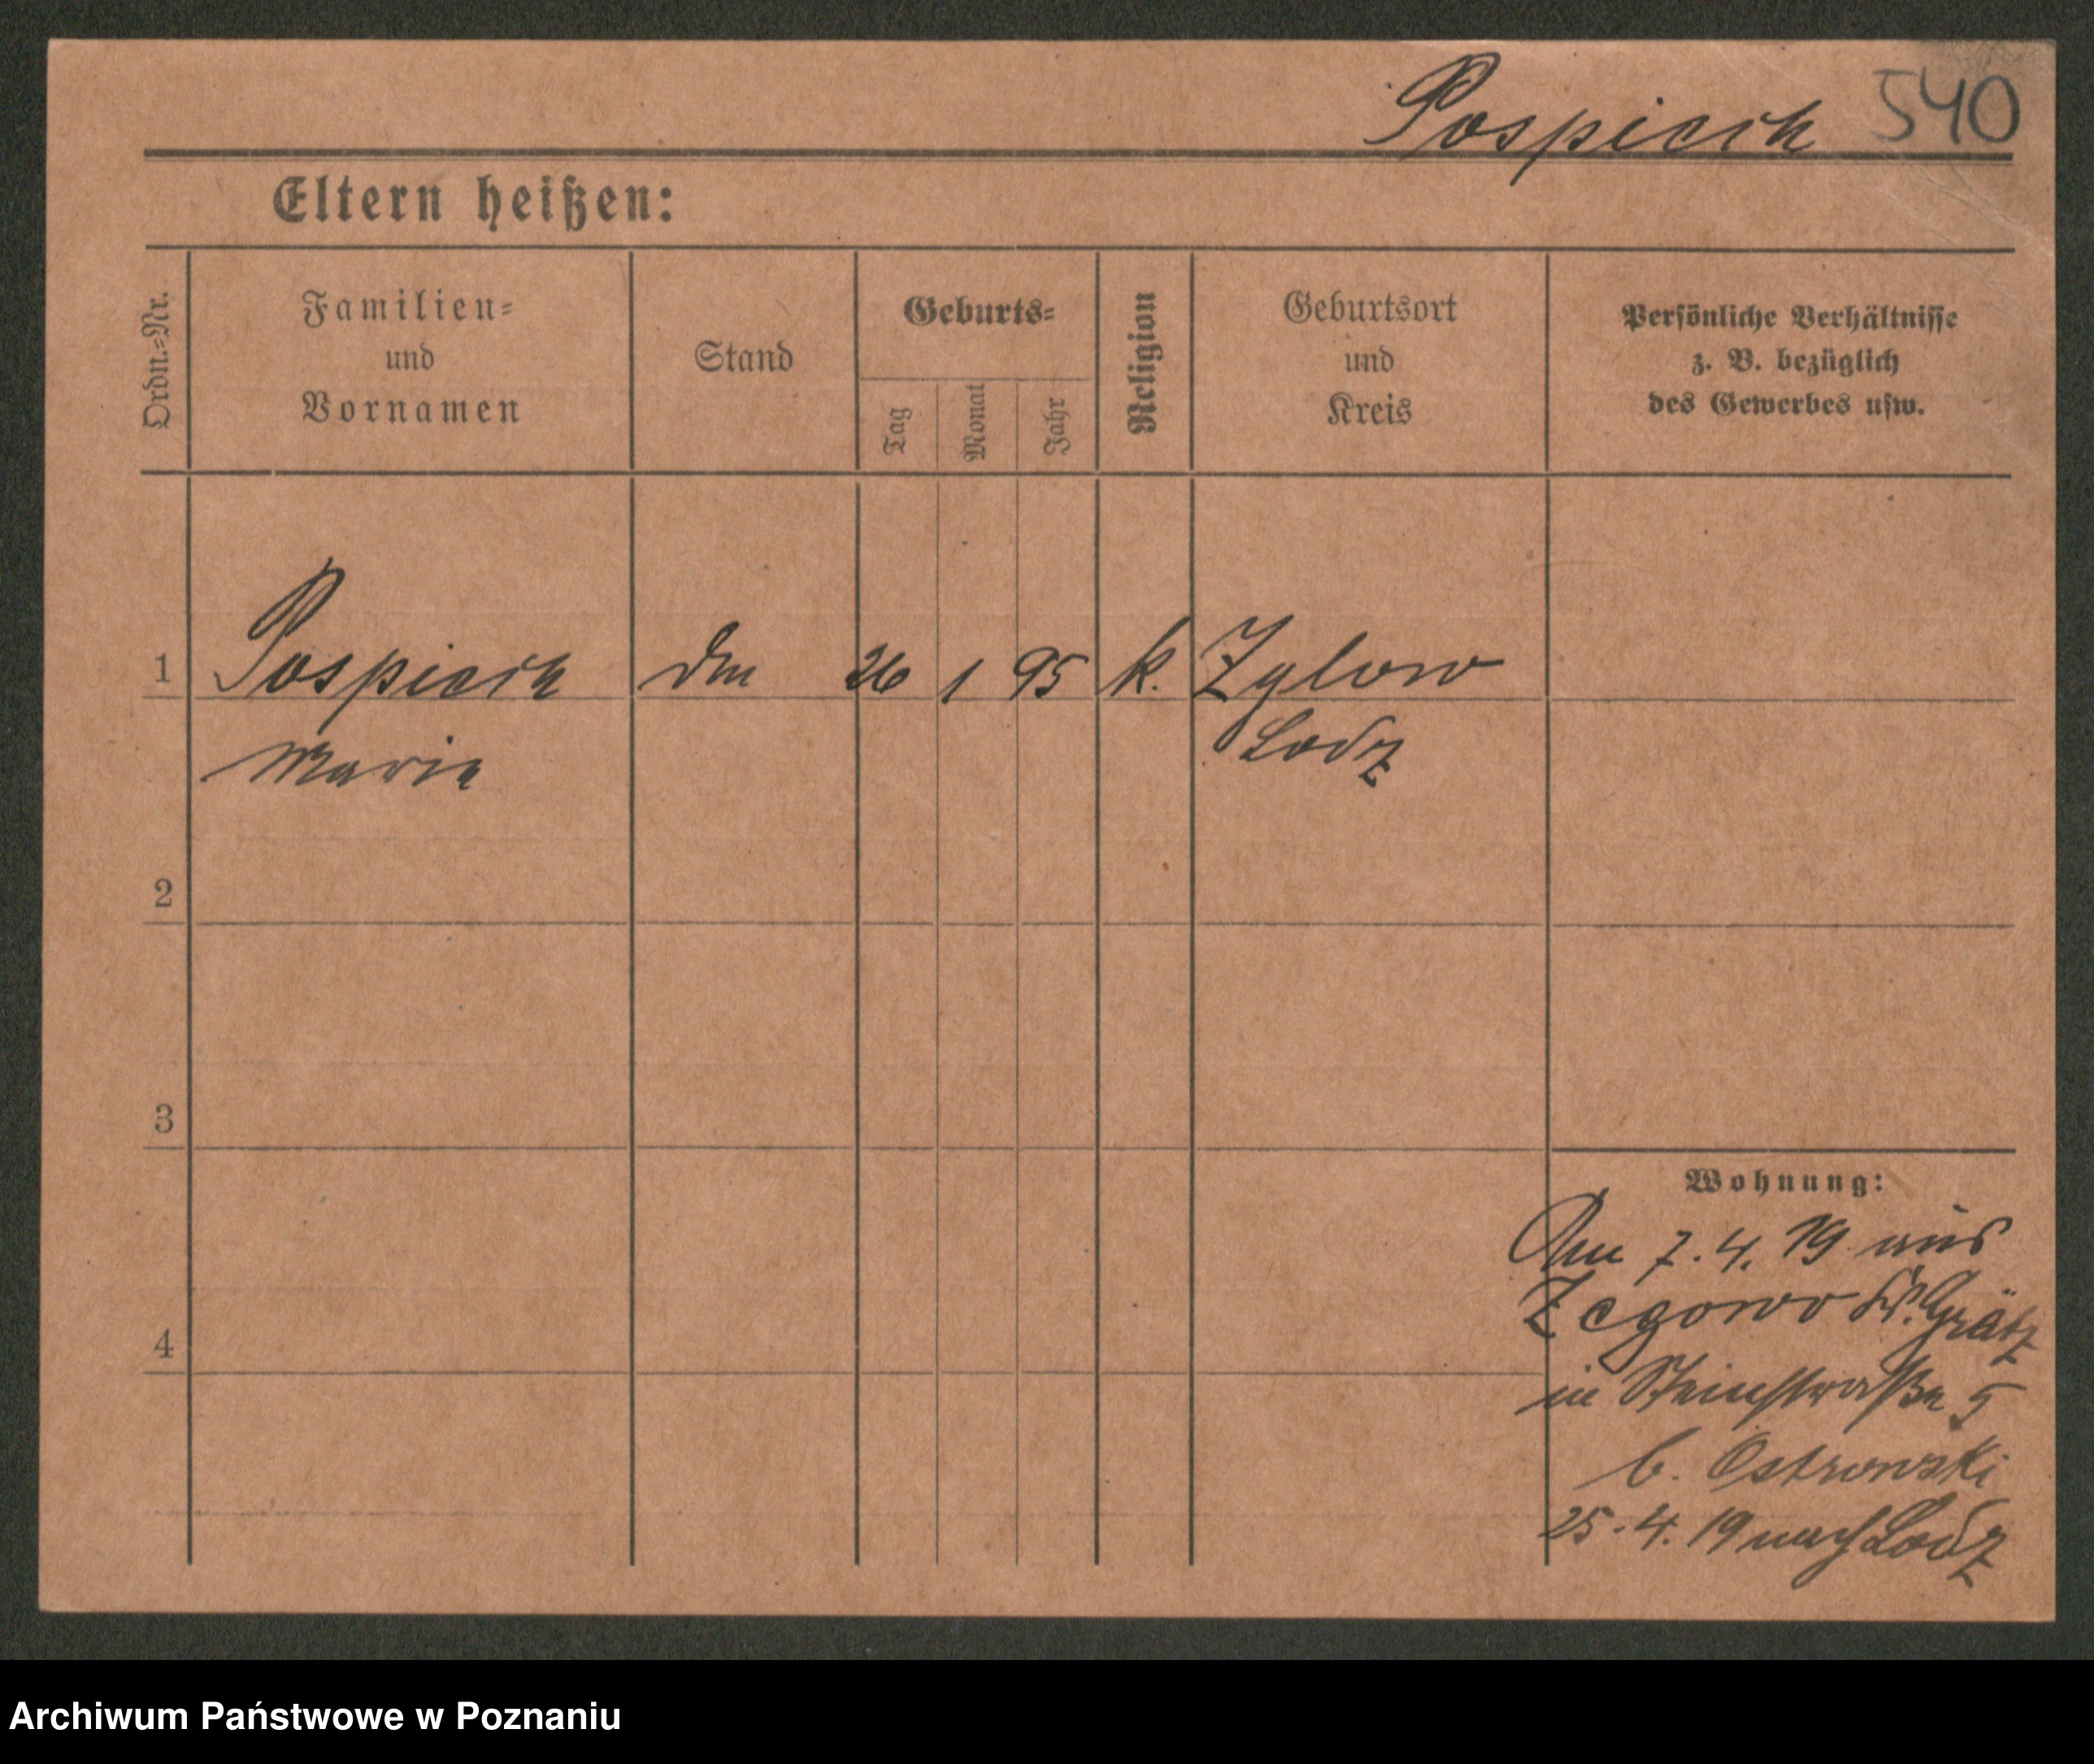 Pospiech 540
Eltern heißen:
Ordn.-Nr.
Familien-
und
Vornamen
Stand
Geburts-
Tag
Monat
Jahr
Religion
Geburtsort
und
Kreis
Persönliche Verhältnisse
z. B. bezüglich
des Gewerbes usw.
1 Pospiech 26 1 95 k. Zylow
Marie Lodz
2
3
4
Wohnung:
Am 7. 4. 19 aus
Zegowo Kr. Grätz
in Steinstraße 5
b. Ostrowski
25. 4. 19 nach Lodz
Archiwum Państwowe w Poznaniu